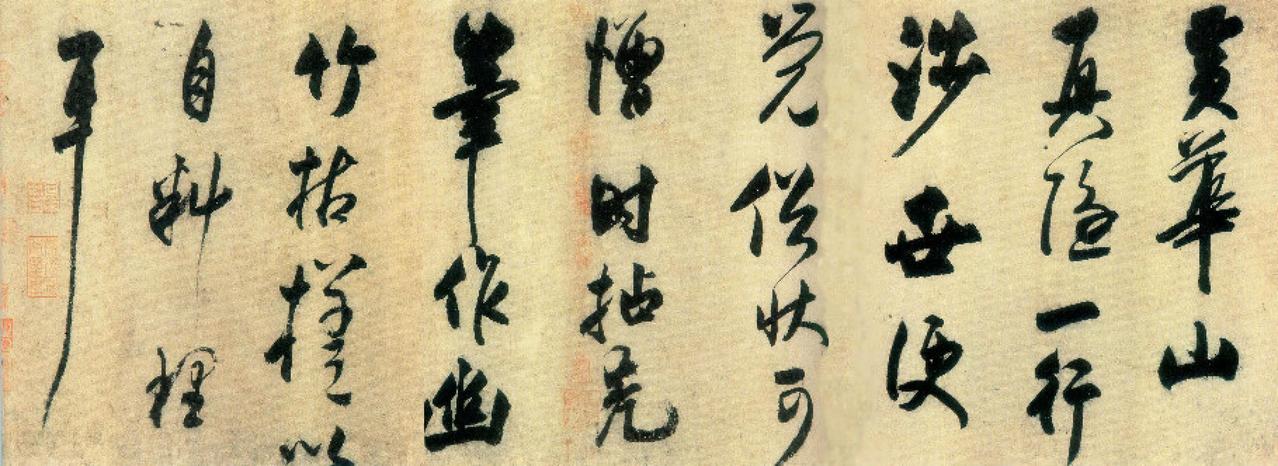 黄華山
真隱一行
涉世便
覺俗狀可
憎时拈禿
筆作幽
竹枯槎以
自料理
耳